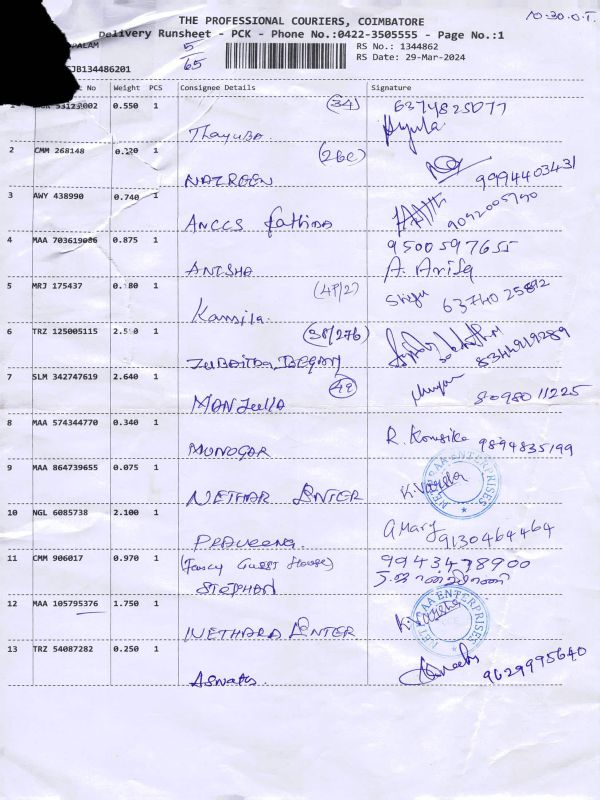 10-30.O.T.
THE PROFESSIONAL COURIERS, COIMBATORE
Delivery Runsheet - PCK - Phone No.:0422-3505555 - Page No.:1
PALAM
5/65
RS No.: 1344862
RS Date: 29-Mar-2024
CJB134486201
No Weight PCS Consignee Details Signature
1 53123002 0.550 1 Thayuba. (34) 6374825077
2 CMM 268148 0.220 1 NAZREEN (26C) 9994403431
3 AWY 438990 0.740 1 ANCCS fathima 9092005740
4 MAA 703619086 0.875 1 ANISHA 9500597655
A. Arifa
5 MRJ 175437 0.180 1 Kamila. (4P/2) 63740 25892
6 TRZ 125005115 2.550 1 ZUBAITDA BEGAM (38/27b) 8344919289
7 SLM 342747619 2.640 1 MANJULLA (49) 80980 11225
8 MAA 574344770 0.340 1 MUNOGAR R. Kowsika 9894835199
9 MAA 864739655 0.075 1 NETHAR ENTER K. Vanitha
ENTERPRISES
10 NGL 6085738 2.100 1 PRAVEENA. A Mary 9130464464
11 CMM 906017 0.970 1 (Fancy Guest House) 9943478900
STEPHAN
12 MAA 105795376 1.750 1 NETHARA ENTER K. Vanitha
ENTERPRISES
13 TRZ 54087282 0.250 1 ASWATH. 9629995640